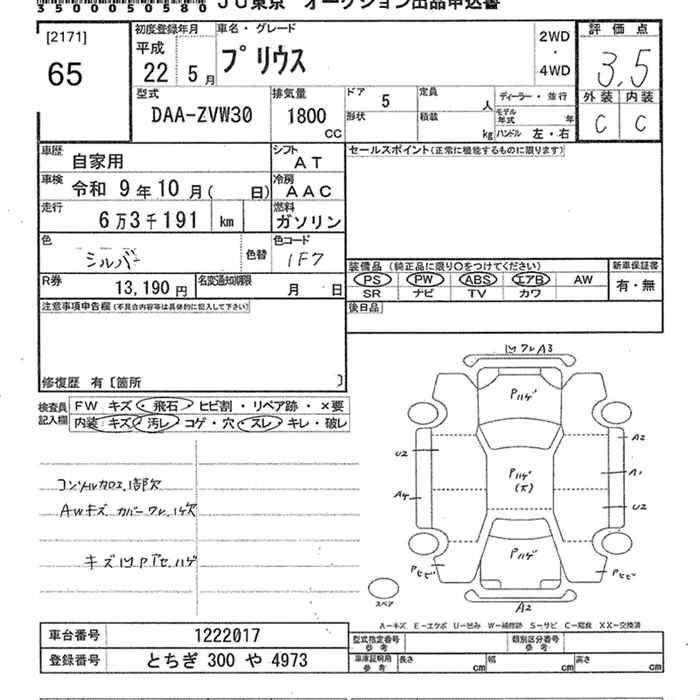 35000050580 JU東京 オークション出品申込書
[2171]
65
初度登録年月
平成
22 年 5 月
車名・グレード
プリウス
2WD
・
4WD
評価点
3.5
外装 内装
C C
型式
DAA-ZVW30
排気量
1800
CC
ドア 5
形状
定員 人
積載 kg
ディーラー・並行
モデル年式 年
ハンドル 左・右
車歴 自家用
シフト AT
車検 令和 9年10月( 日)
冷房 AAC
走行 6万3千191 km
燃料 ガソリン
色 シルバー
色替
色コード 1F7
R券 13,190円
名変通知期限 月 日
セールスポイント(正常に機能するものに限ります)
装備品(純正品に限り○をつけてください)
PS PW ABS エアB AW
SR ナビ TV カワ
新車保証書
有・無
後日品
注意事項申告欄(不具合内容等は具体的に記入して下さい)
修復歴 有〔箇所 〕
検査員記入欄
FW キズ・飛石・ヒビ割・リペア跡・×要
内装 キズ・汚レ・コゲ・穴・スレ・キレ・破レ
AWキズ カバーワレ、ハゲ欠
ワレA3
Pハゲ
A2
U2
Pハゲ
(大)
A1
A4
U2
Pハゲ
Pヒビ
Pヒビ
A2
スペア
A-キズ E-エクボ U-凹み W-補修跡 S-サビ C-腐食 XX-交換済
車台番号 1222017
登録番号 とちぎ 300 や 4973
型式指定番号 参考
類別区分番号 参考
車庫証明用 参考
長さ cm
幅 cm
高さ cm